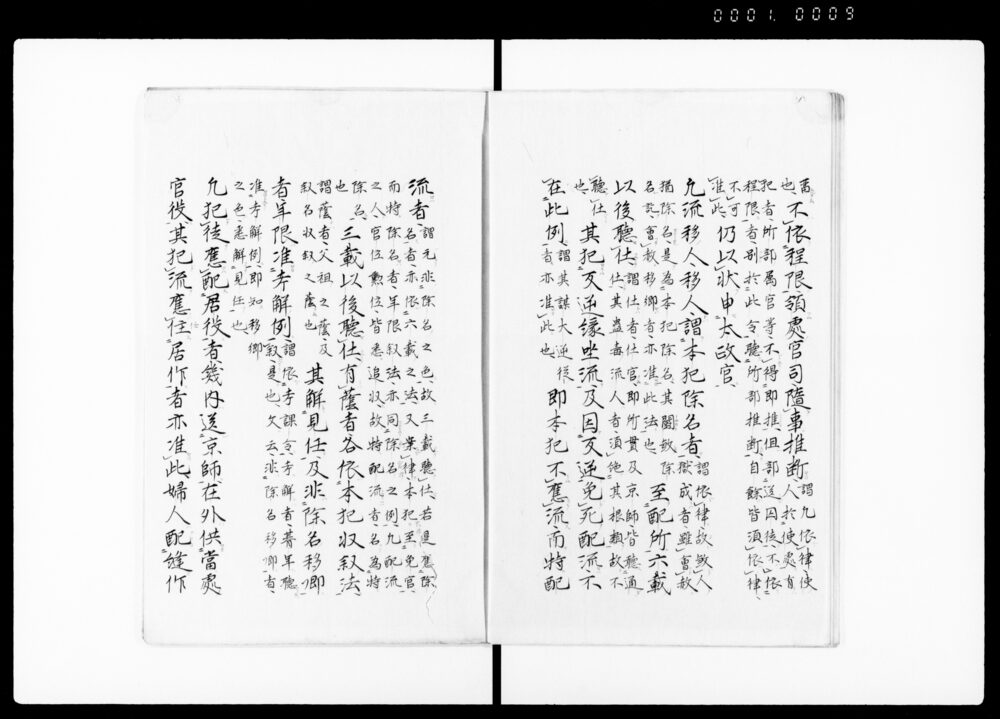 也
不依程限領處官司隨事推断
謂凢依律使
人於使處有
犯者所部属官等不得即推但部送囚徒不依
程限者別於此令聽所部推断自餘皆須依律
不可
准此
仍以状申太政官
凢流移人移人謂本犯除名者
謂依律故殺人
獄成者雖會赦
猶除名是為本犯除名其闘殺除
名訖會赦移郷者亦准此法也
至配所六載
以後聽仕
謂仕者仕官即所貫及京師皆聽通
仕其蠱毒流人者須絶其根類故不
聽仕
也
其犯反逆縁坐流及因反逆免死配流不
在此例
謂其謀大逆徒
者亦准此也
即本犯不應流而特配
流者
謂元非除名之色故三載聽仕若是應除
名者亦依六載之法又案律本犯至免官
而特除名者年限叙法亦同除名之例凢配流
之人官位勲位皆悉追収故特配流者名為特
除名
也
三載以後聽仕有蔭者各依本犯収叙法
謂蔭者父祖之蔭及
叙名収叙之蔭也
其解見任及非除名移郷
者年限准考解例
謂依考課令考解者朞年聽
叙是也欠云非除名移郷者
准考解例即知移郷
之色悉解見任也
凢犯徒應配居役者畿内送京師在外供當處
官役其犯流應住居作者亦准此婦人配縫作
0001.0009